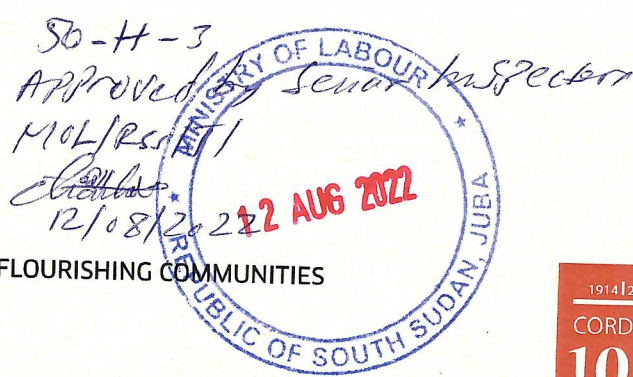 50-H-3
Approved by Senior Inspector
MOL/RSS/J/
12/08/2022
MINISTRY OF LABOUR
12 AUG 2022
REPUBLIC OF SOUTH SUDAN, JUBA
FLOURISHING COMMUNITIES
1914|2
CORD
10